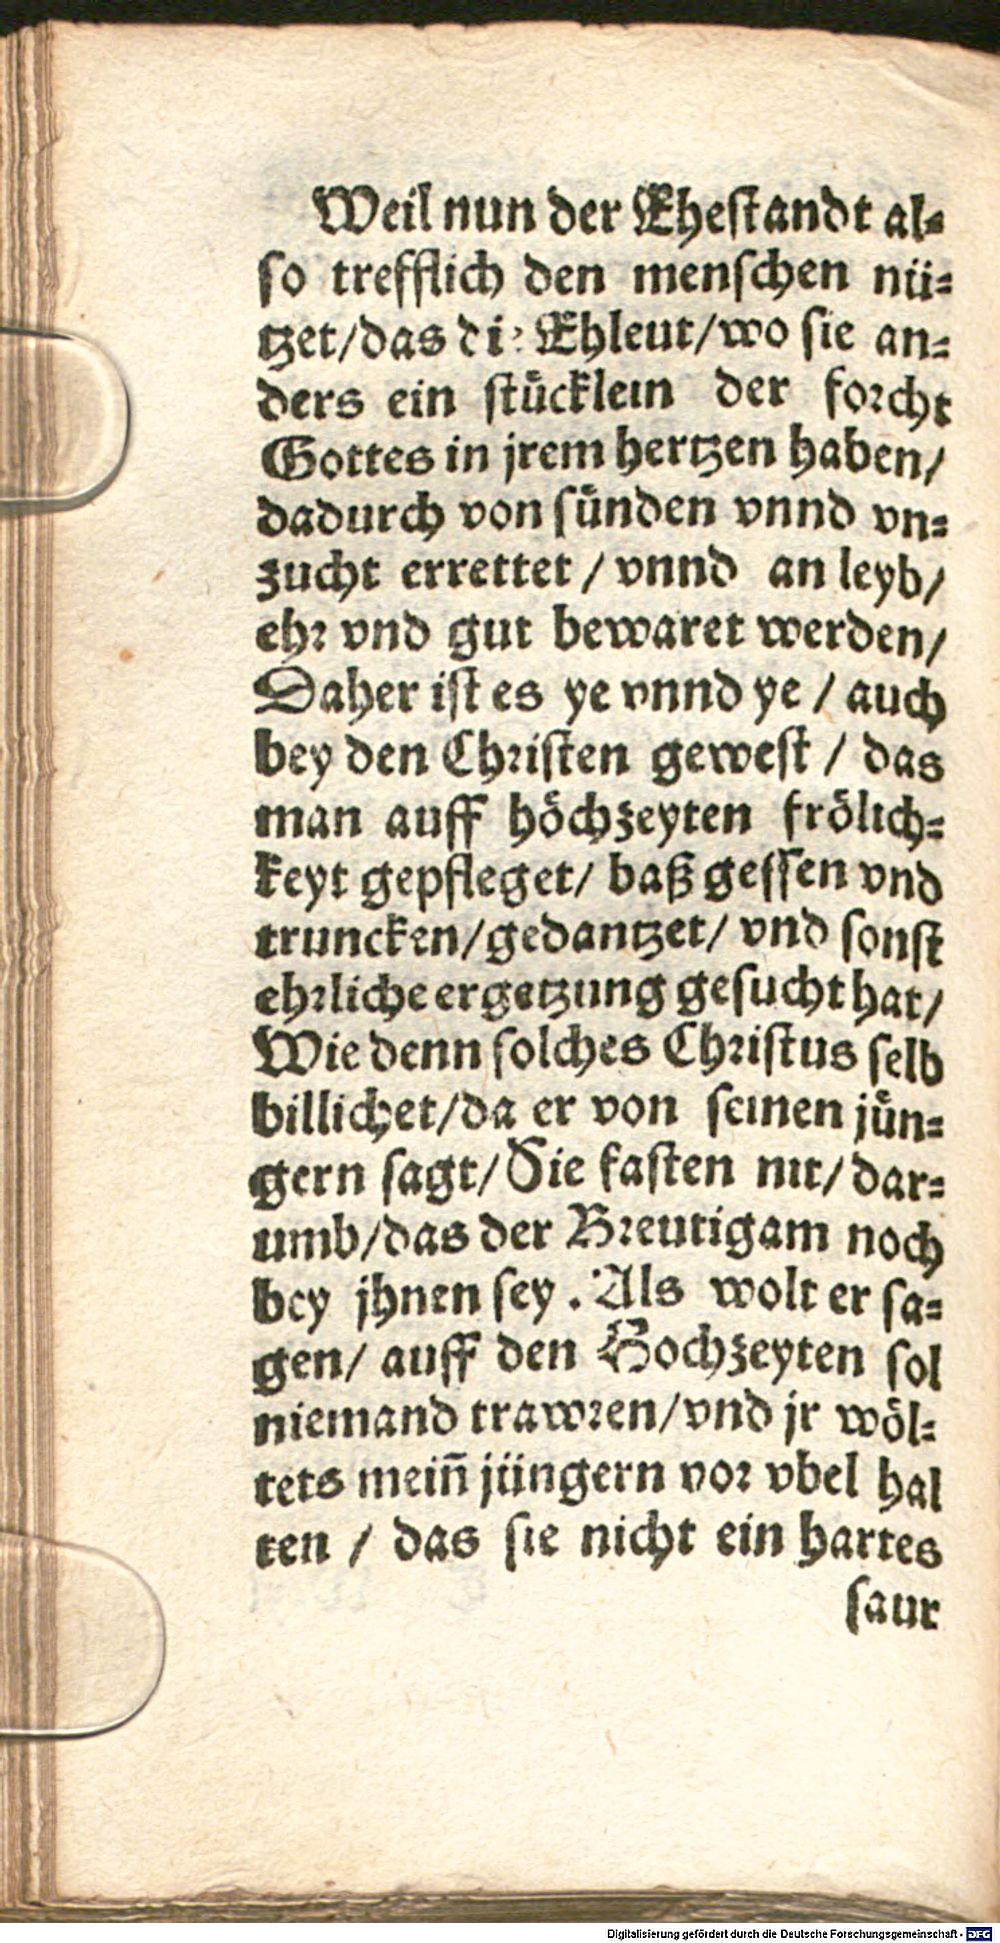 Weil nun der Ehestandt al⸗
so trefflich den menschen nü⸗
tzet/das die Ehleut/wo sie an⸗
ders ein stücklein der forcht
Gottes in jrem hertzen haben/
dadurch von sünden vnnd vn⸗
zucht errettet / vnnd an leyb/
ehr vnd gut bewaret werden/
Daher ist es ye vnnd ye / auch
bey den Christen gewest / das
man auff höchzeyten frölich⸗
keyt gepfleget/ baß gessen vnd
truncken/gedantzet/ vnd sonst
ehrliche ergetzung gesucht hat/
Wie denn solches Christus selb
billichet/da er von seinen jün⸗
gern sagt/Sie fasten nit/ dar⸗
umb/das der Breutigam noch
bey jhnen sey . Als wolt er sa⸗
gen/ auff den Hochzeyten sol
niemand trawren/vnd jr wöl⸗
tets mein̄ jüngern vor vbel hal
ten / das sie nicht ein hartes
saur
Digitalisierung gefördert durch die Deutsche Forschungsgemeinschaft - DFG